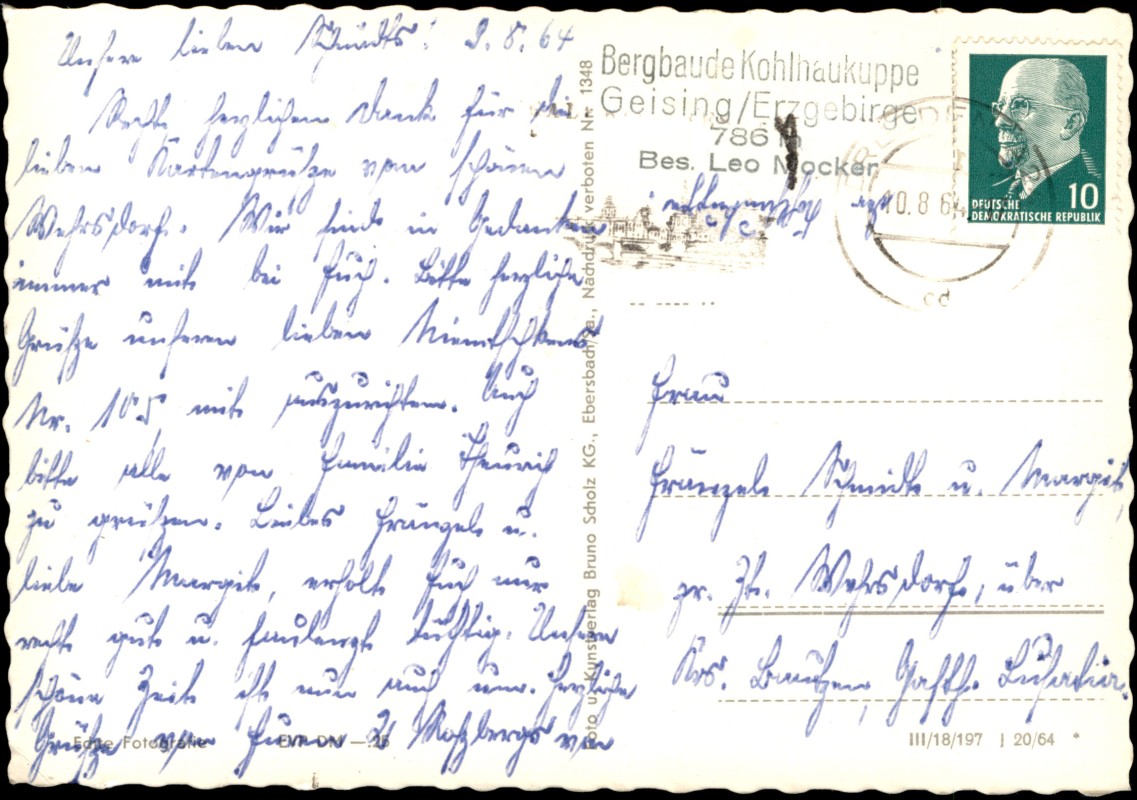 Unsere lieben Schmidts! 9.8.64
Recht herzlichen Dank für die
lieben Kartengrüße vom schönen
Wehrsdorf. Wir sind in Gedanken
immer mit bei Euch. Bitte herzliche
Grüße unseren lieben
Nr. 105 mit auszurichten. Auch
bitte alle von Familie Heinrich
zu grüßen. Liebes Fränzele u.
liebe Margit, erholt Euch nur
recht gut u. faulenzt tüchtig. Unsere
schöne Zeit ist nun auch um. Herzliche
Grüße von Euren 2 Matzbergs von
Echte Fotografie EVP DM —.25
Foto u. Kunstverlag Bruno Scholz KG., Ebersbach/Sa., Nachdruck verboten Nr. 1348
Bergbaude Kohlhaukuppe
Geising/Erzgebirge
786 m
Bes. Leo Mocker
10.8.64
cd
10
DEUTSCHE
DEMOKRATISCHE REPUBLIK
Frau
Fränzele Schmidt u. Margit,
zr. Zt. Wehrsdorf, über
Krs. Bautzen, Gasth. Lusatia.
III/18/197 J 20/64